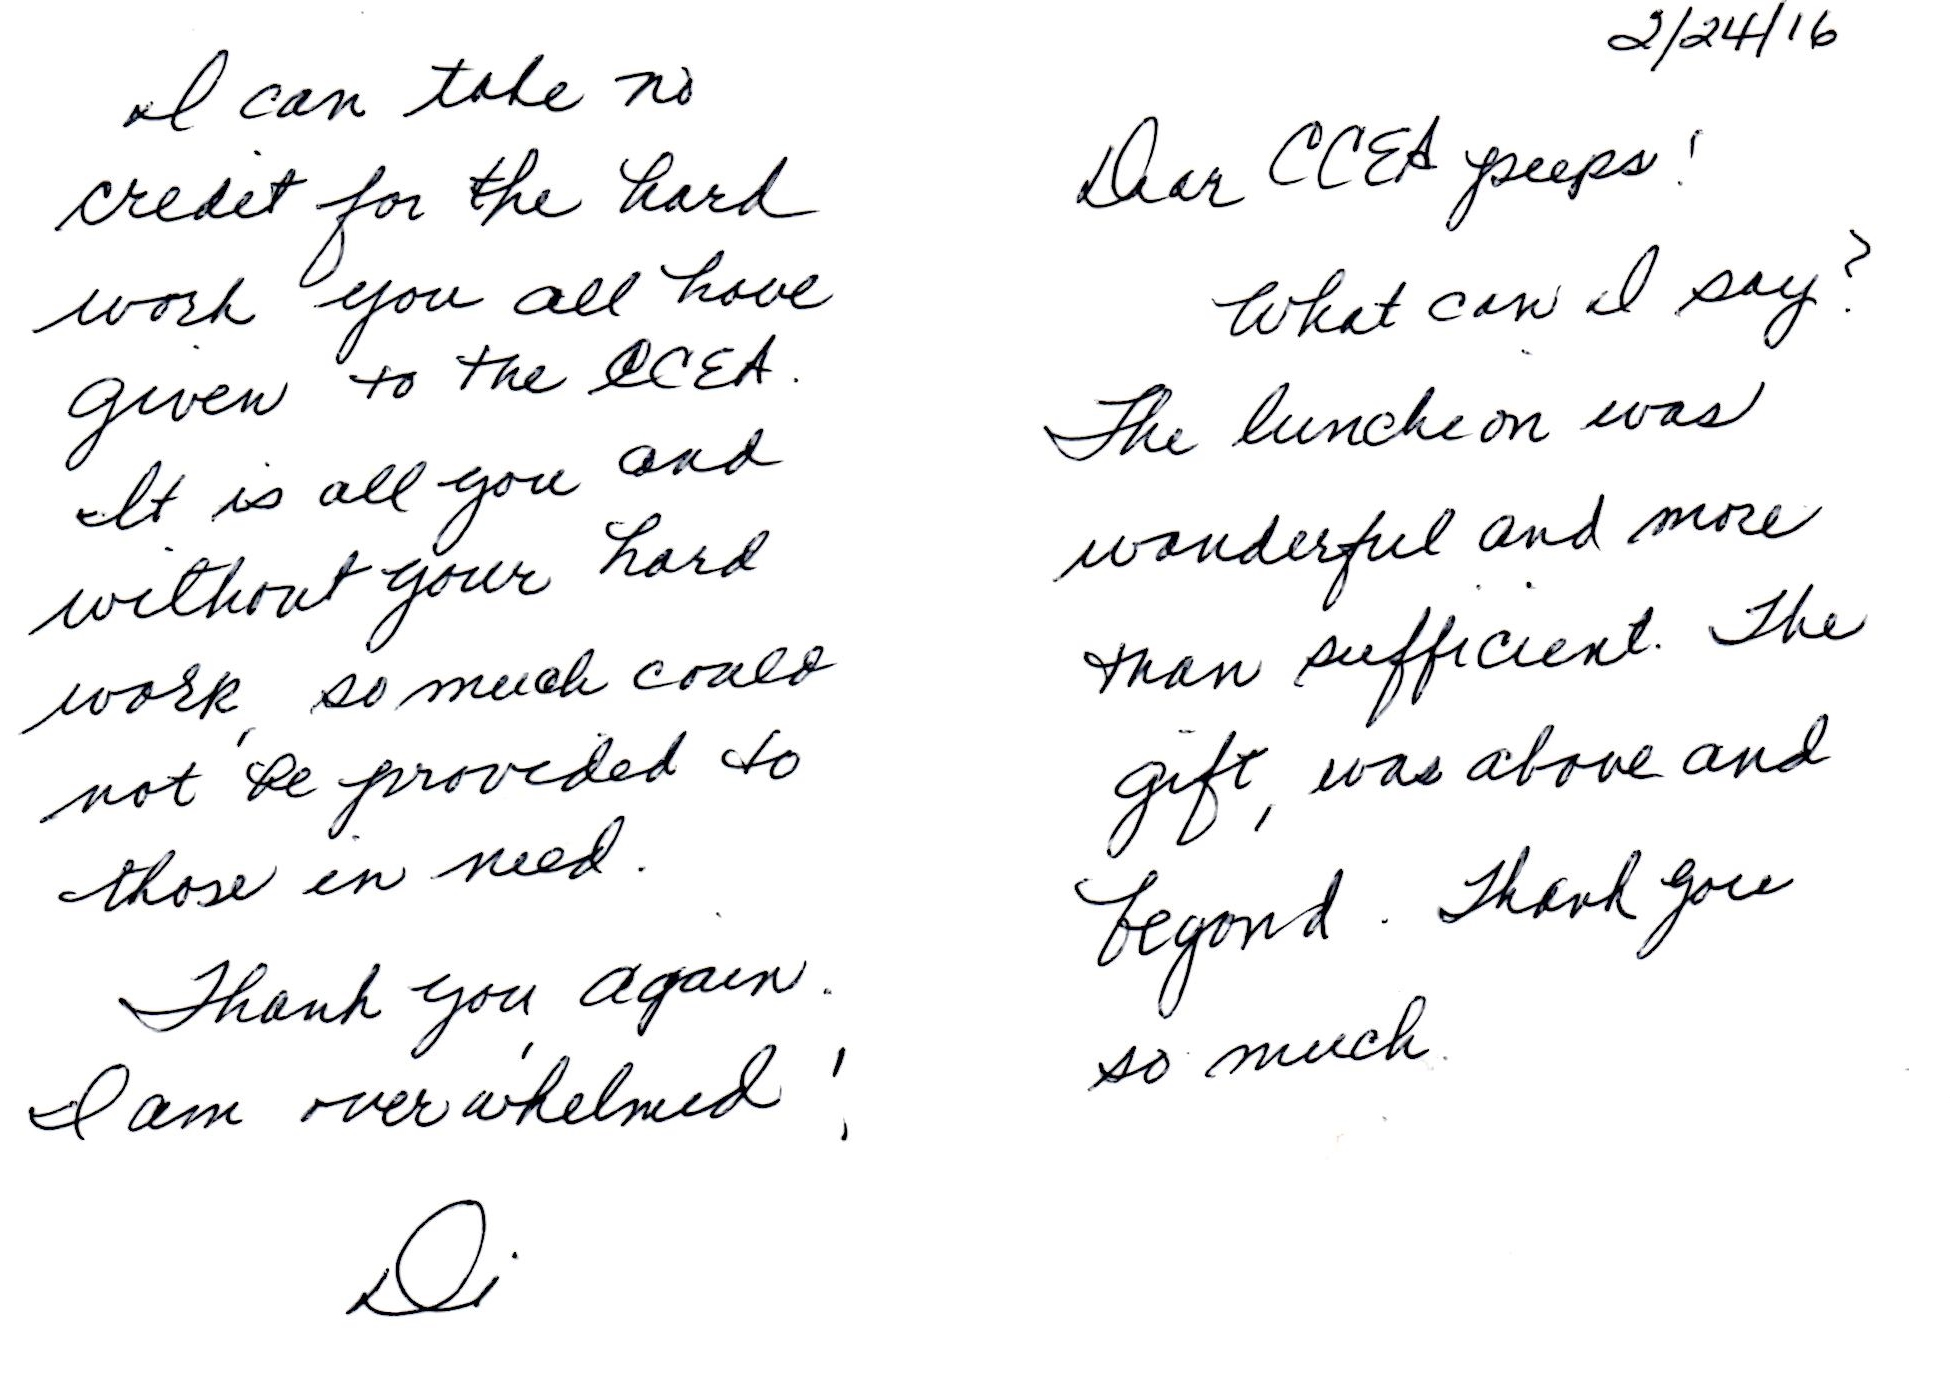 2/24/16
Dear CCEA peeps!
What can I say?
The luncheon was
wonderful and more
than sufficient. The
gift, was above and
beyond. Thank you
so much.
I can take no
credit for the hard
work you all have
given to the CCEA.
It is all you and
without your hard
work, so much could
not be provided to
those in need.
Thank you, again.
I am overwhelmed!
Di